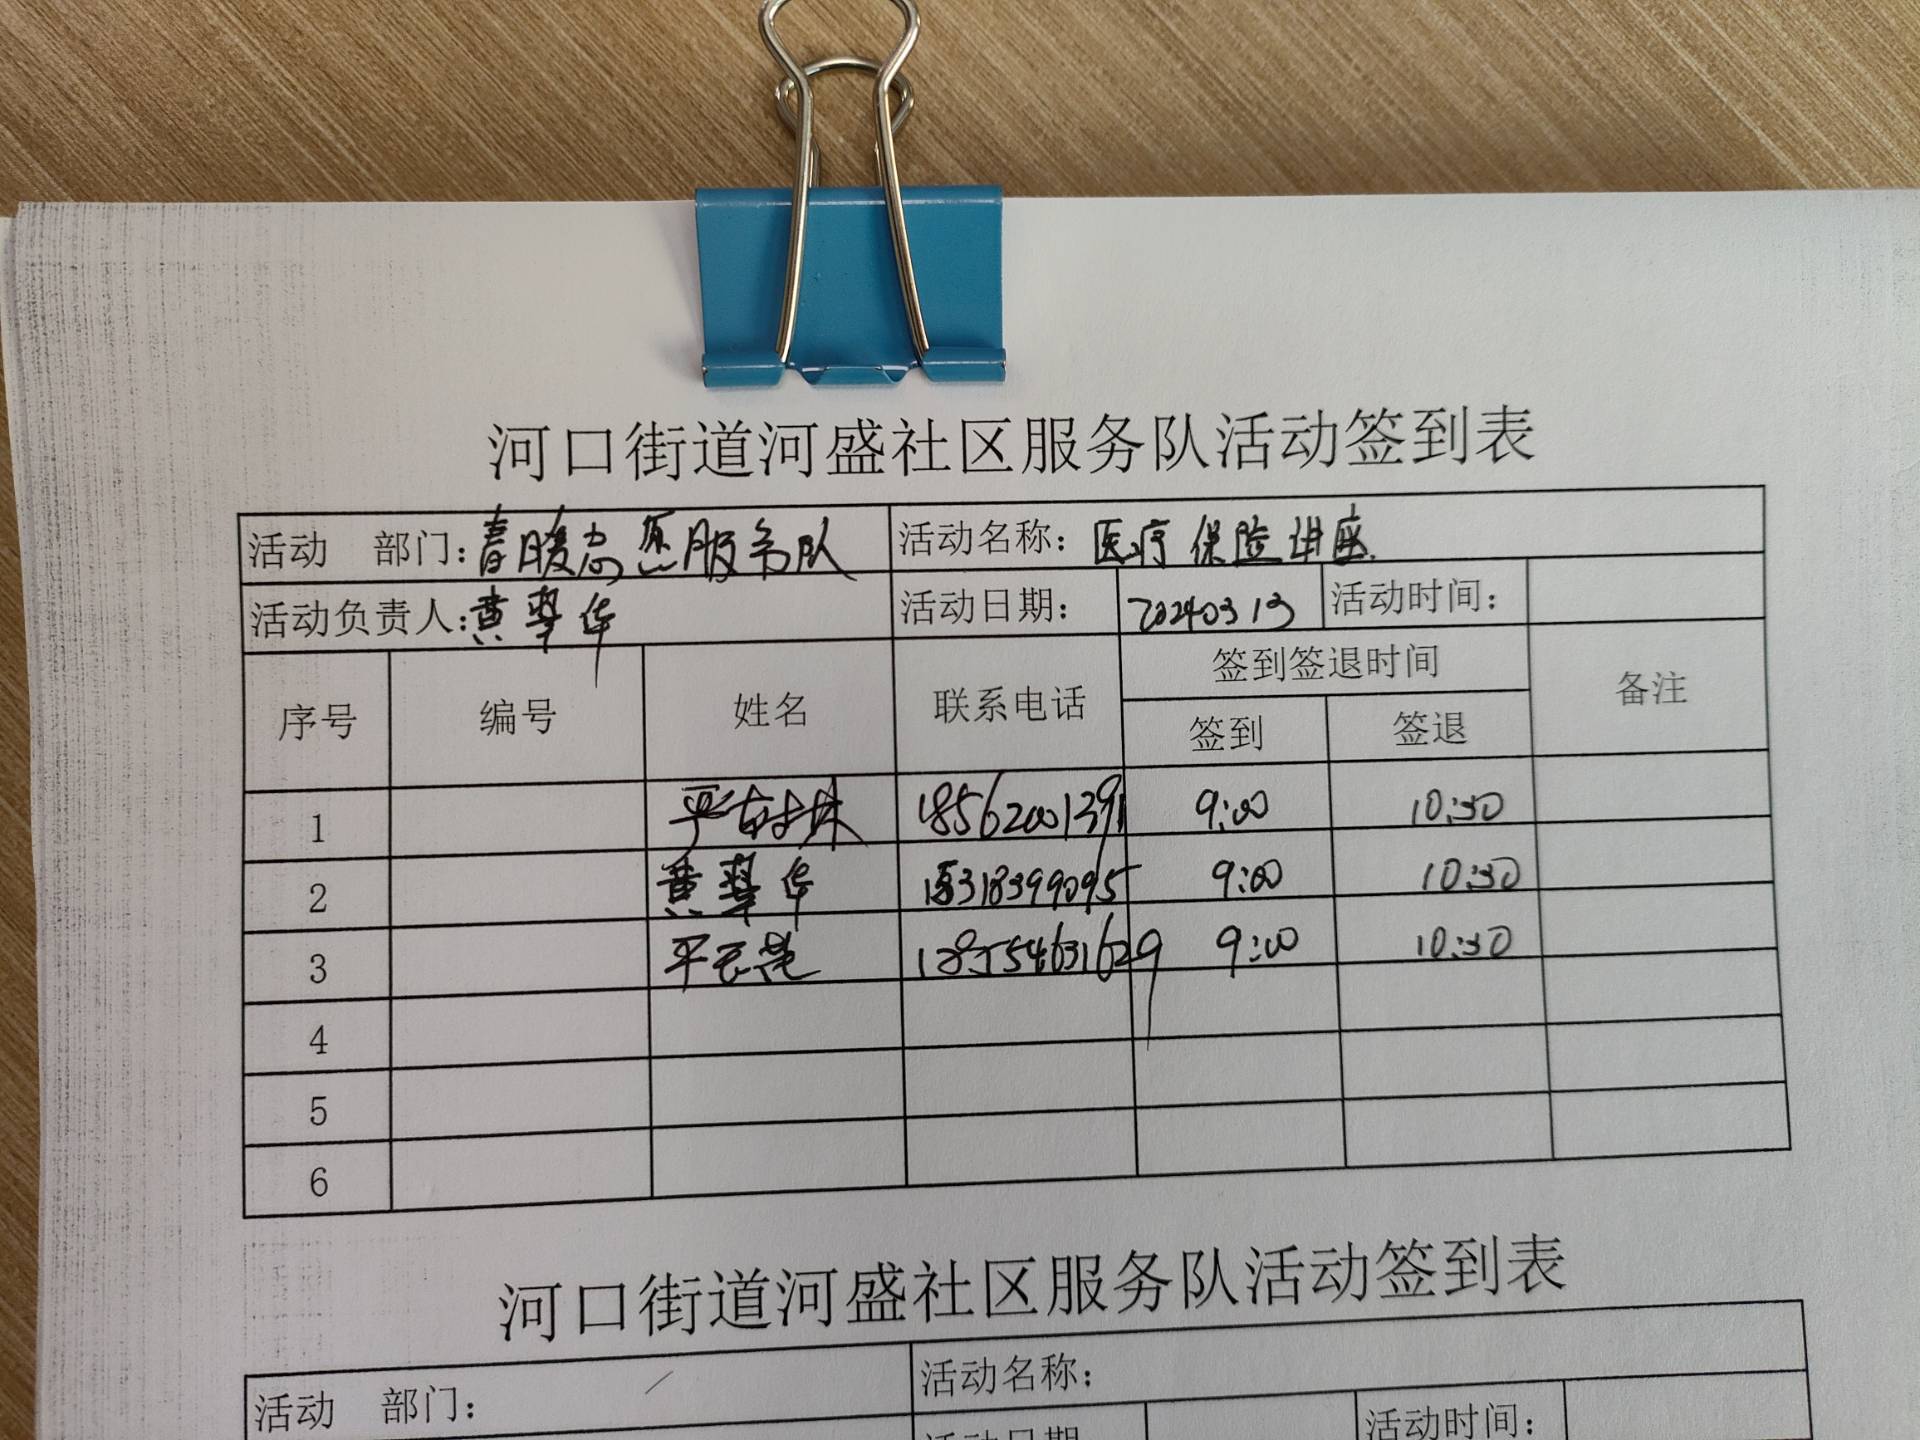 河口街道河盛社区服务队活动签到表
活动 部门：春暖志愿服务队 活动名称：医疗保险讲座
活动负责人：黄翠华 活动日期： 20240313 活动时间：
序号 编号 姓名 联系电话 签到签退时间 备注
签到 签退
1 18562001391 9:00 10:30
2 黄翠华 318399095 9:00 10:30
3 18554631629 9:00 10:30
4
5
6
河口街道河盛社区服务队活动签到表
活动 部门： 活动名称：
活动日期 活动时间：